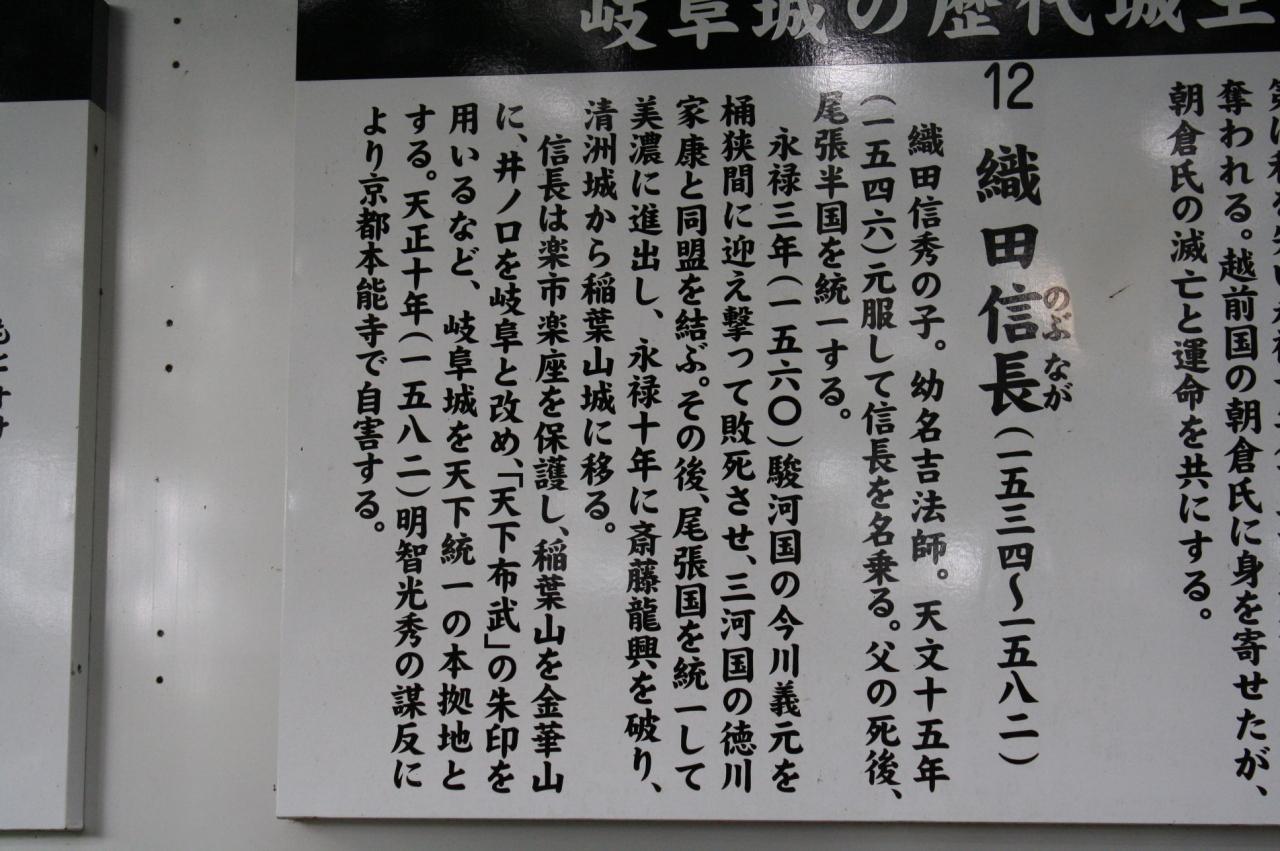 岐阜城の歴代城主
奪われる。越前国の朝倉氏に身を寄せたが、
朝倉氏の滅亡と運命を共にする。
12 織田信長(一五三四〜一五八二)
のぶなが
織田信秀の子。幼名吉法師。天文十五年
(一五四六)元服して信長を名乗る。父の死後、
尾張半国を統一する。
永禄三年(一五六〇)駿河国の今川義元を
桶狭間に迎え撃って敗死させ、三河国の徳川
家康と同盟を結ぶ。その後、尾張国を統一して
美濃に進出し、永禄十年に斎藤龍興を破り、
清洲城から稲葉山城に移る。
信長は楽市楽座を保護し、稲葉山を金華山
に、井ノ口を岐阜と改め、「天下布武」の朱印を
用いるなど、岐阜城を天下統一の本拠地と
する。天正十年(一五八二)明智光秀の謀反に
より京都本能寺で自害する。